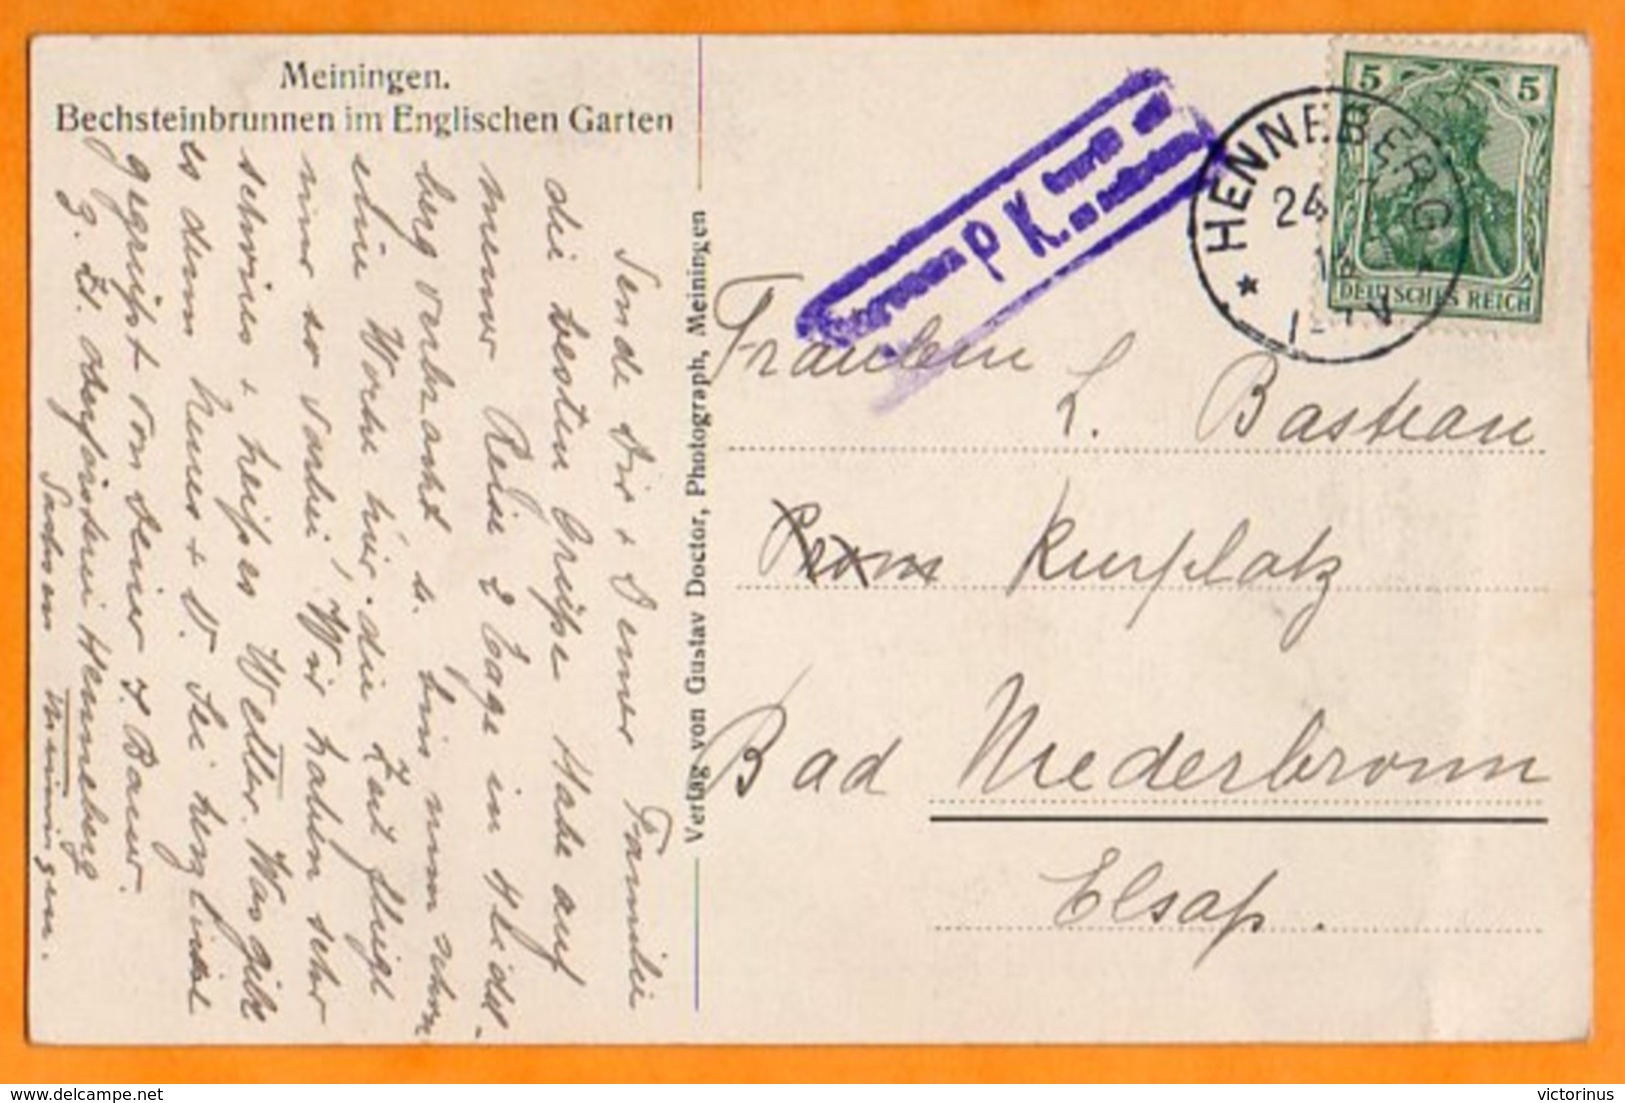 Meiningen.
Bechsteinbrunnen im Englischen Garten
Sende Dir + Deiner Familie
die besten Grüße. Habe auf
meiner Reise 2 Tage in Heidel-
berg verbracht u. bin nun schon
eine Woche hier, die Zeit fliegt
nur so vorbei! Wir haben sehr
schönes + heißes Wetter. Was gibt
es denn Neues + V. Sei herzlichst
gegrüßt von Deiner J. Baur.
z. Zt. Oberförsterei Henneberg
Sachsen Meiningen.
Verlag von Gustav Doctor, Photograph, Meiningen
P.K.
HENNEBERG
24
5 5
DEUTSCHES REICH
Fräulein
L. Bastian
Kurplatz
Bad Niederbronn
Elsaß.
delcampe.net
victorinus